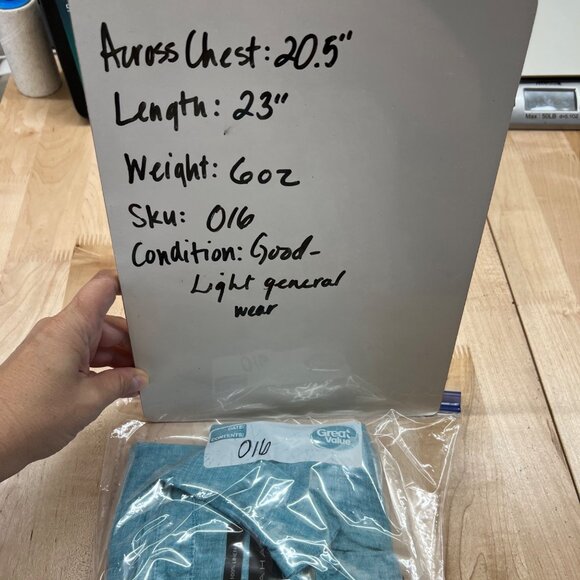 Across Chest: 20.5"
Length: 23"
Weight: 6oz
Sku: 016
Condition: Good-
Light general
wear
Max: 50LB d=0.1OZ
DATE:
CONTENTS:
Great
Value
016